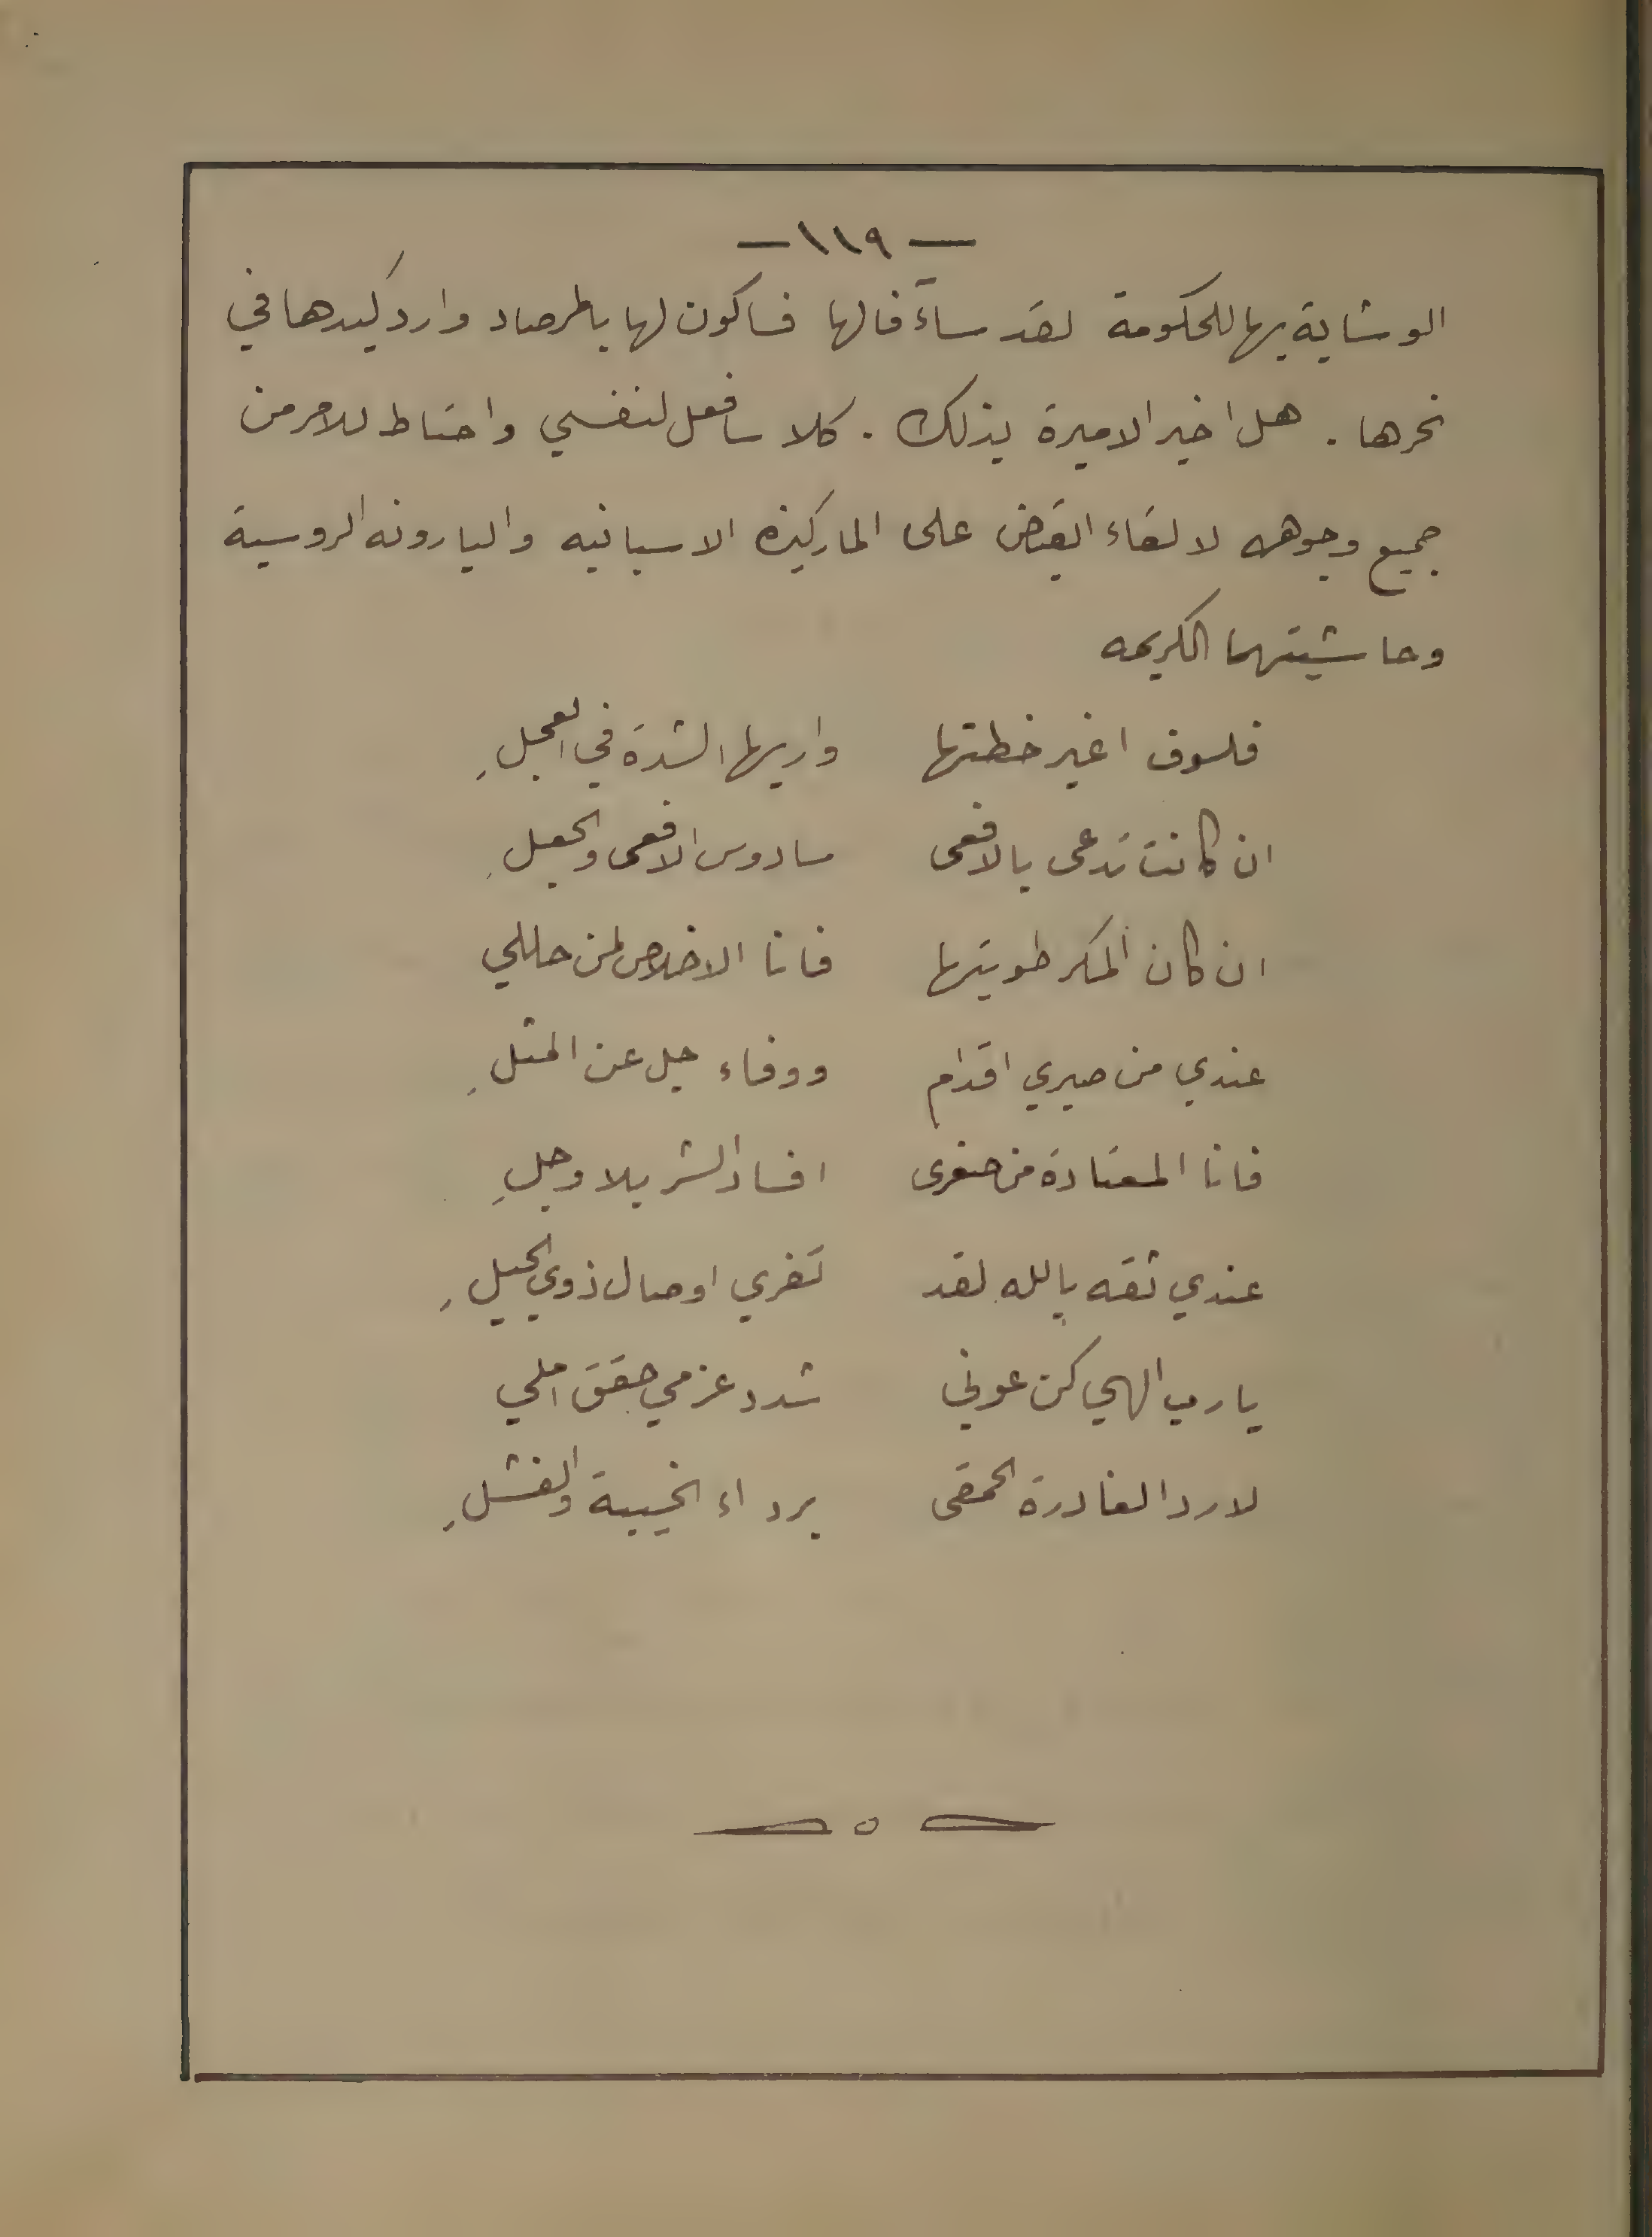 — ١١٩ —
الوشاية بها للحكومة لقد ساءَ فالها فساكون لها بالمرصاد وارد كيدها في
نحرها . هل اخبر الاميرة بذلك . كلا سافعل لنفسي واحتاط للامر من
جميع وجوهه لالقاء القبض على الماركيزه الاسبانيه والبارونه الروسية
وحاشيتهما الكريمه
فلسوف اغير خطتها    واريها الشدة في العجلِ
ان كانت تدعى بالافعى    سادوس الافعى والجعلِ
ان كان المكر طويتها    فانا الاخلاص لمن حللي
عندي من صبري اقدام    ووفاء جل عن المثلِ
فانا المعتادة من صغرى    افساد الشر بلا وجلِ
عندي ثقه بالله لقد    تفري اوصال ذوي الحيلِ
يارب الهي كن عوني    شدد عزمي حقق املي
لارد الغادرة الحمقى    برداء الخيبة والفشلِ